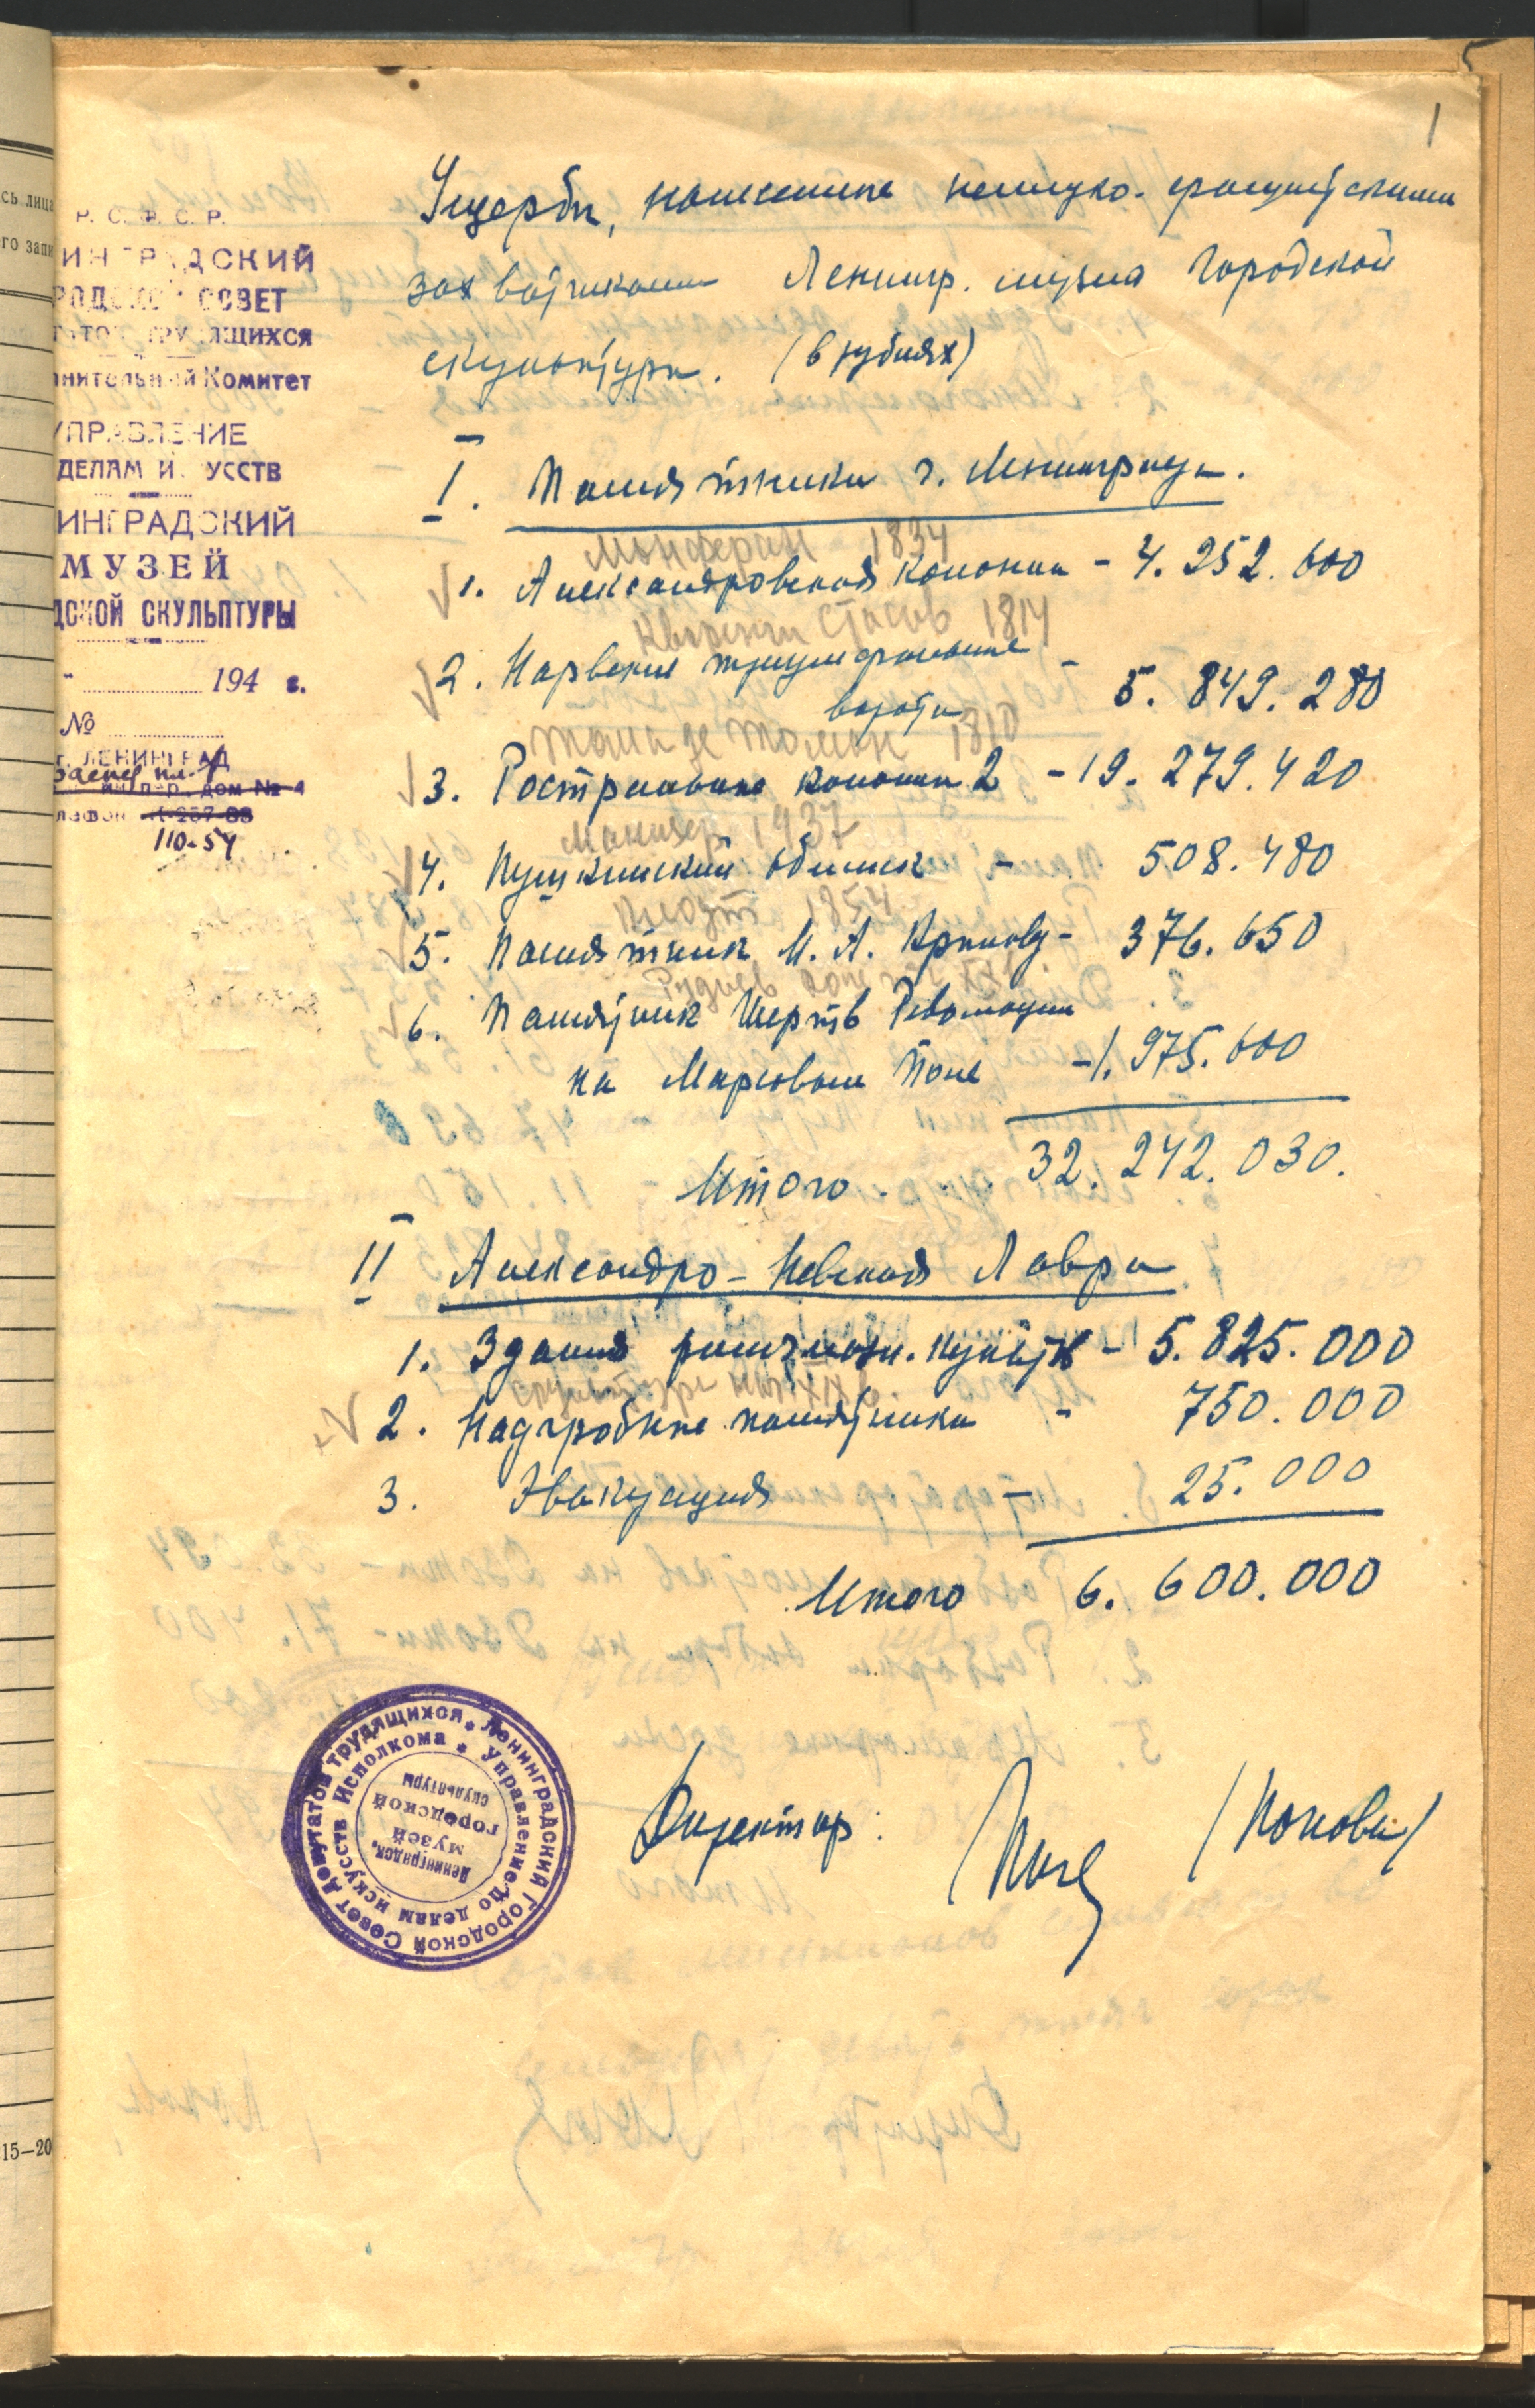 5
1
сь лица
го запи
15—20
Р. С. Ф. С. Р.
ИНГРАДСКИЙ
РОДСКОЙ СОВЕТ
ТАТОВ ТРУДЯЩИХСЯ
лнительный Комитет
УПРАВЛЕНИЕ
ДЕЛАМ ИСКУССТВ
ИНГРАДСКИЙ
МУЗЕЙ
ДСКОЙ СКУЛЬПТУРЫ
194 г.
№
г. ЛЕНИНГРАД
пер. дом № 4
лефон 257-88
110-54
Ущербы, нанесенные немецко-фашистскими
захватчиками Ленингр. музею Городской
скульптуры. (в рублях)
I. Памятники г. Ленинграда.
Монферан 1834
1. Александровская колонна - 4.252.600
Кваренги Стасов 1814
2. Нарвские триумфальные - 5.849.280
ворота
Тома де Томон 1810
3. Ростральные колонны 2 - 19.279.420
Манизер 1937
4. Пушкинский обелиск - 508.480
Клодт 1854
5. Памятник И. А. Крылову - 376.650
Руднев
6. Памятник Жертв Революции
на Марсовом Поле - 1.975.600
Итого . . . 32.242.030.
II Александро-Невская Лавра
1. Здания - 5.825.000
скульптура XIX в.
2. Надгробные памятники - 750.000
3. Эвакуация - 25.000
Итого 6.600.000
Ленинградский Городской Совет депутатов трудящихся *
Управление по делам искусств Исполкома *
Ленинградск.
музей
городской
скульптуры
Директор: (Попова)